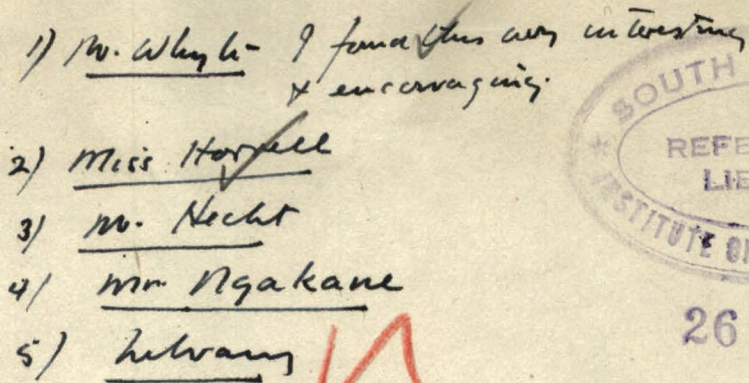 1) Mr. Whyte I found this very interesting
& encouraging.
2) Miss Horrell
3) Mr. Hecht
4) Mr Ngakane
5) Library
SOUTH
REFE
LIB
INSTITUTE OF
26